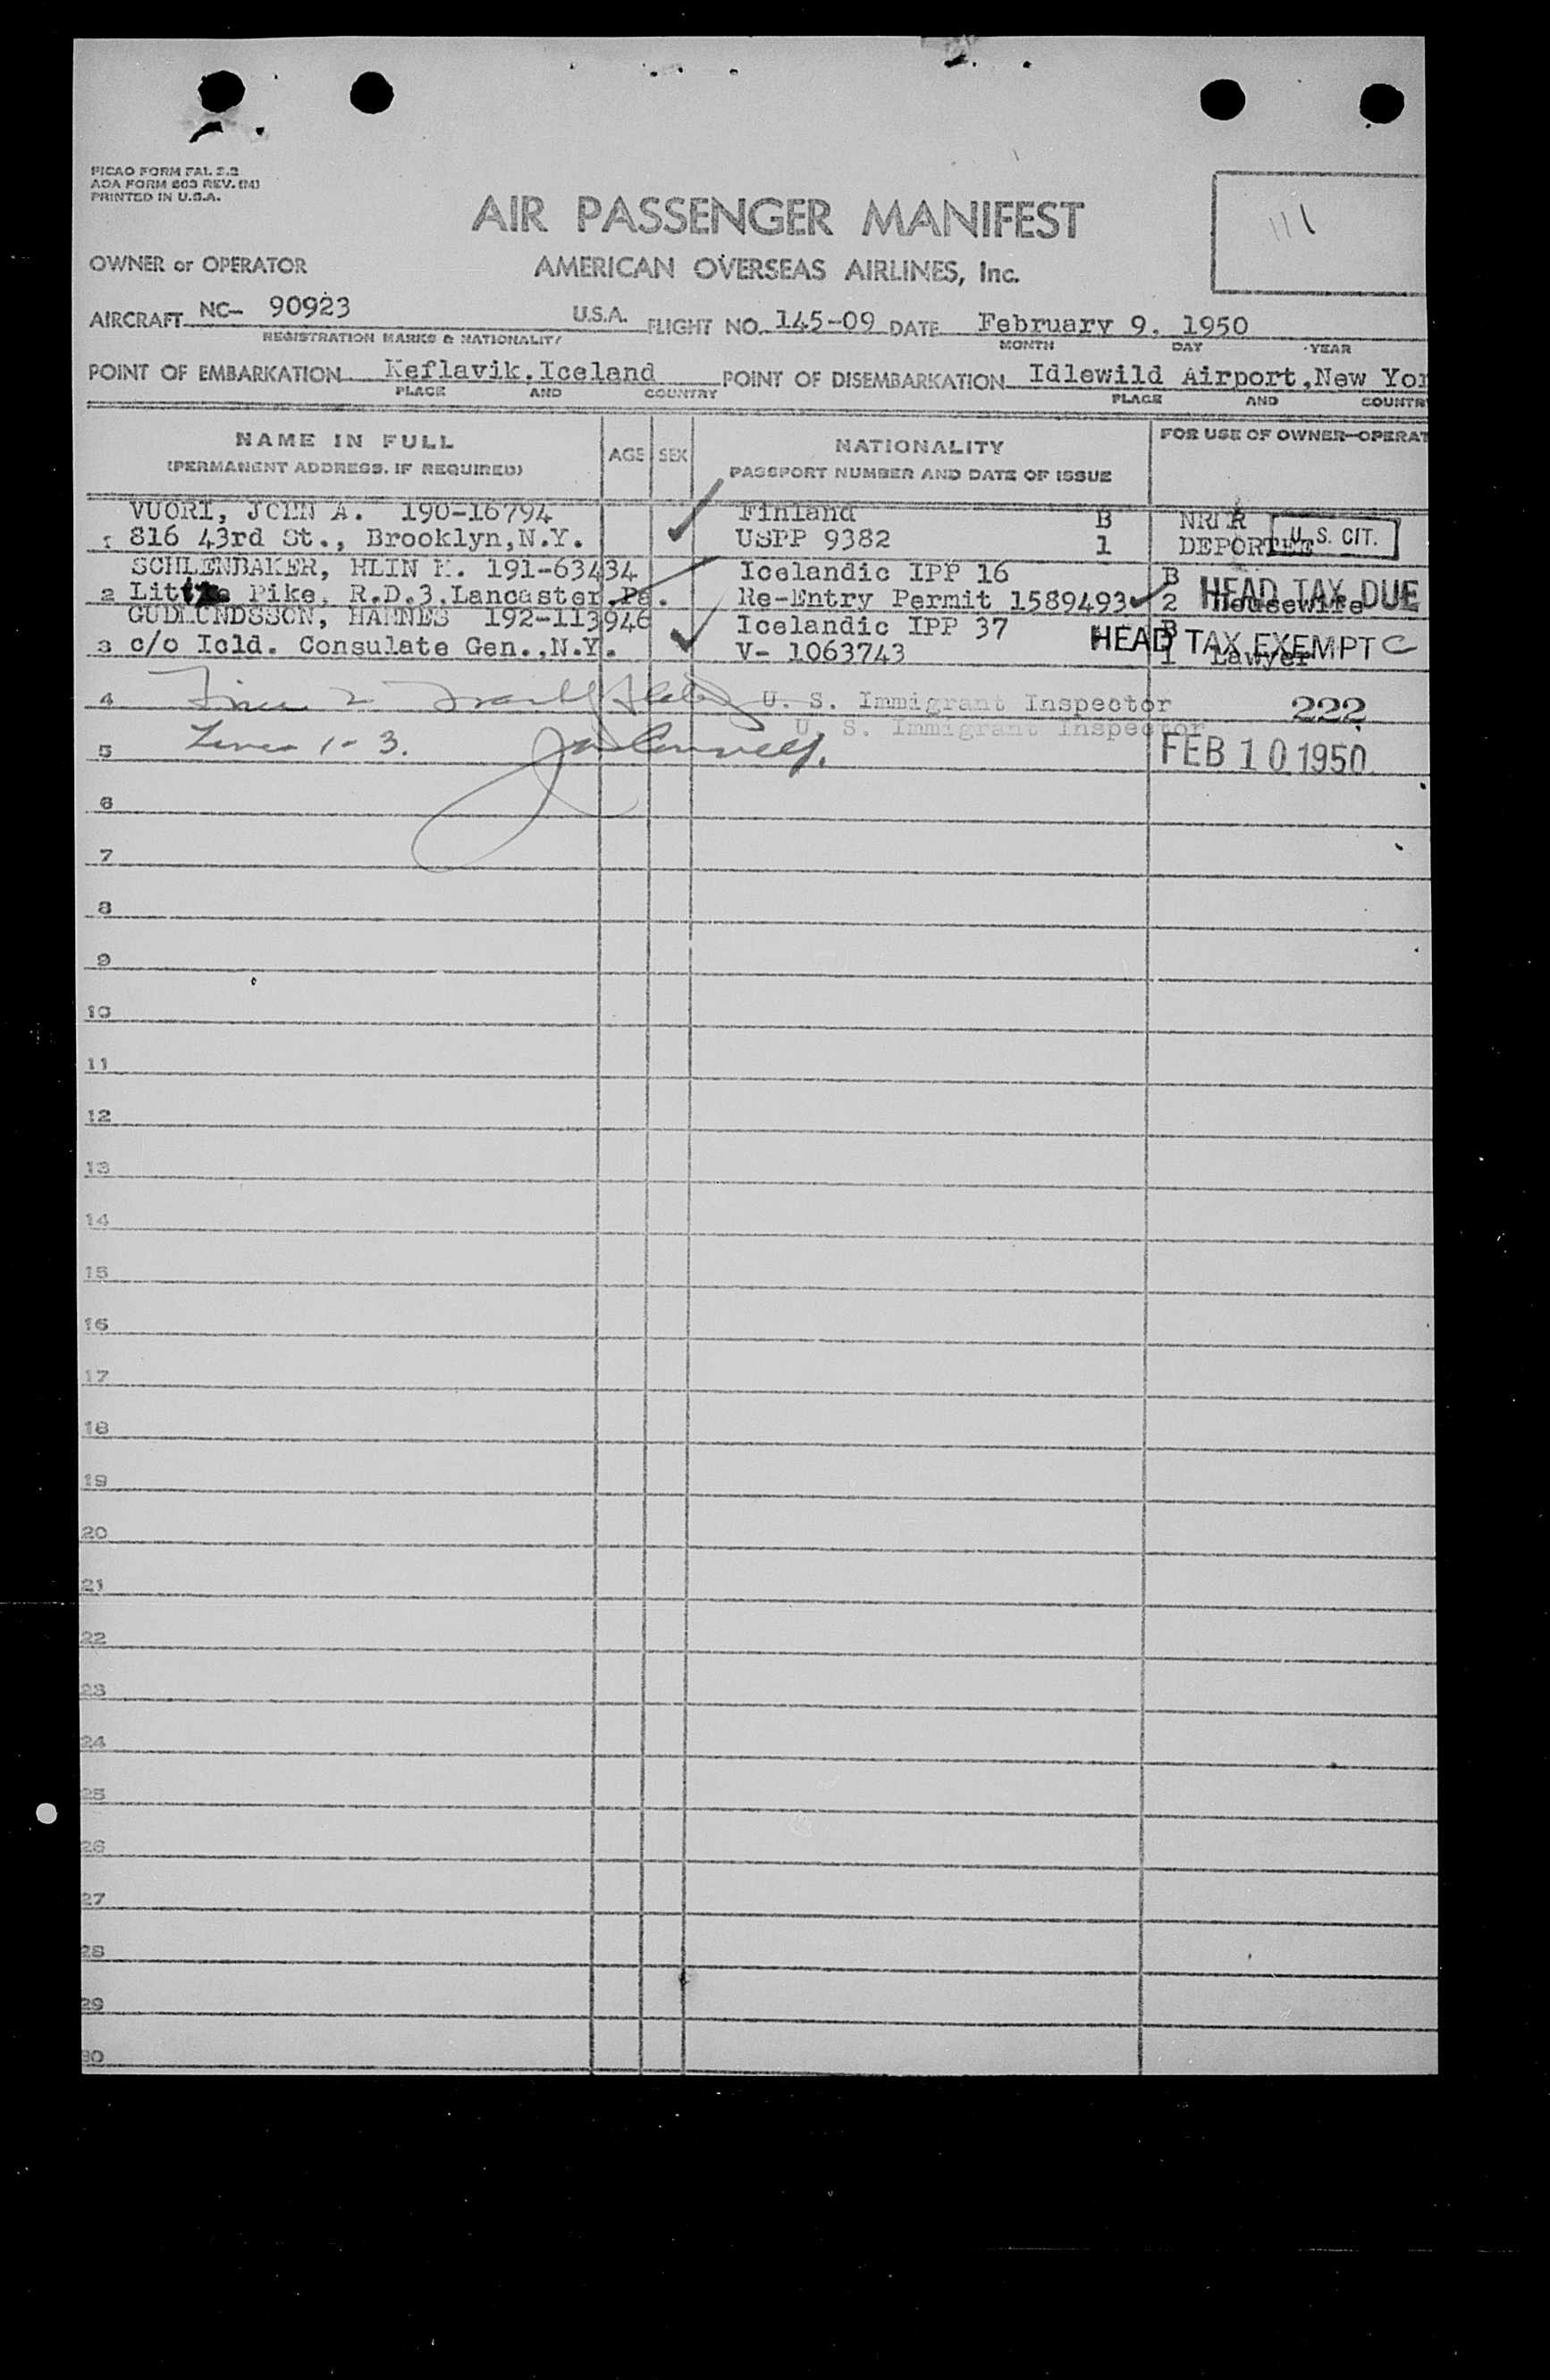 PICAO FORM FAL 2.2
AOA FORM 603 REV. (M)
PRINTED IN U.S.A.
AIR PASSENGER MANIFEST
111
OWNER or OPERATOR
AMERICAN OVERSEAS AIRLINES, Inc.
AIRCRAFT NC- 90923 U.S.A. FLIGHT NO. 145-09 DATE February 9, 1950
REGISTRATION MARKS & NATIONALITY MONTH DAY YEAR
POINT OF EMBARKATION Keflavik,Iceland POINT OF DISEMBARKATION Idlewild Airport,New Yor
PLACE AND COUNTRY PLACE AND COUNTR
NAME IN FULL AGE SEX NATIONALITY FOR USE OF OWNER-OPERAT
(PERMANENT ADDRESS, IF REQUIRED) PASSPORT NUMBER AND DATE OF ISSUE
VUORI, JOHN A. 190-16794 Finland B
1 816 43rd St., Brooklyn,N.Y. USPP 9382 1 DEPORTEE U. S. CIT.
SCHLENBAKER, HLIN M. 191-63434 Icelandic IPP 16 B
2 Pike, R.D.3,Lancaster,Pa. Re-Entry Permit 1589493 2 Housewife HEAD TAX DUE
GUDMUNDSSON, HANNES 192-113946 Icelandic IPP 37 B
3 c/o Icld. Consulate Gen.,N.Y. V- 1063743 1 Lawyer HEAD TAX EXEMPT C
4 Line 2 U. S. Immigrant Inspector 222
U. S. Immigrant Inspector
5 Lines 1-3. FEB 10 1950
6
7
8
9
10
11
12
13
14
15
16
17
18
19
20
21
22
23
24
25
26
27
28
29
30